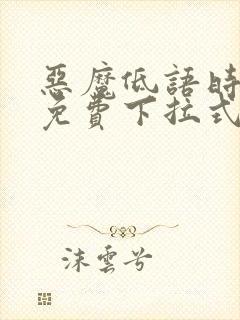 惡魔低語時
免費下拉式
沫雲兮